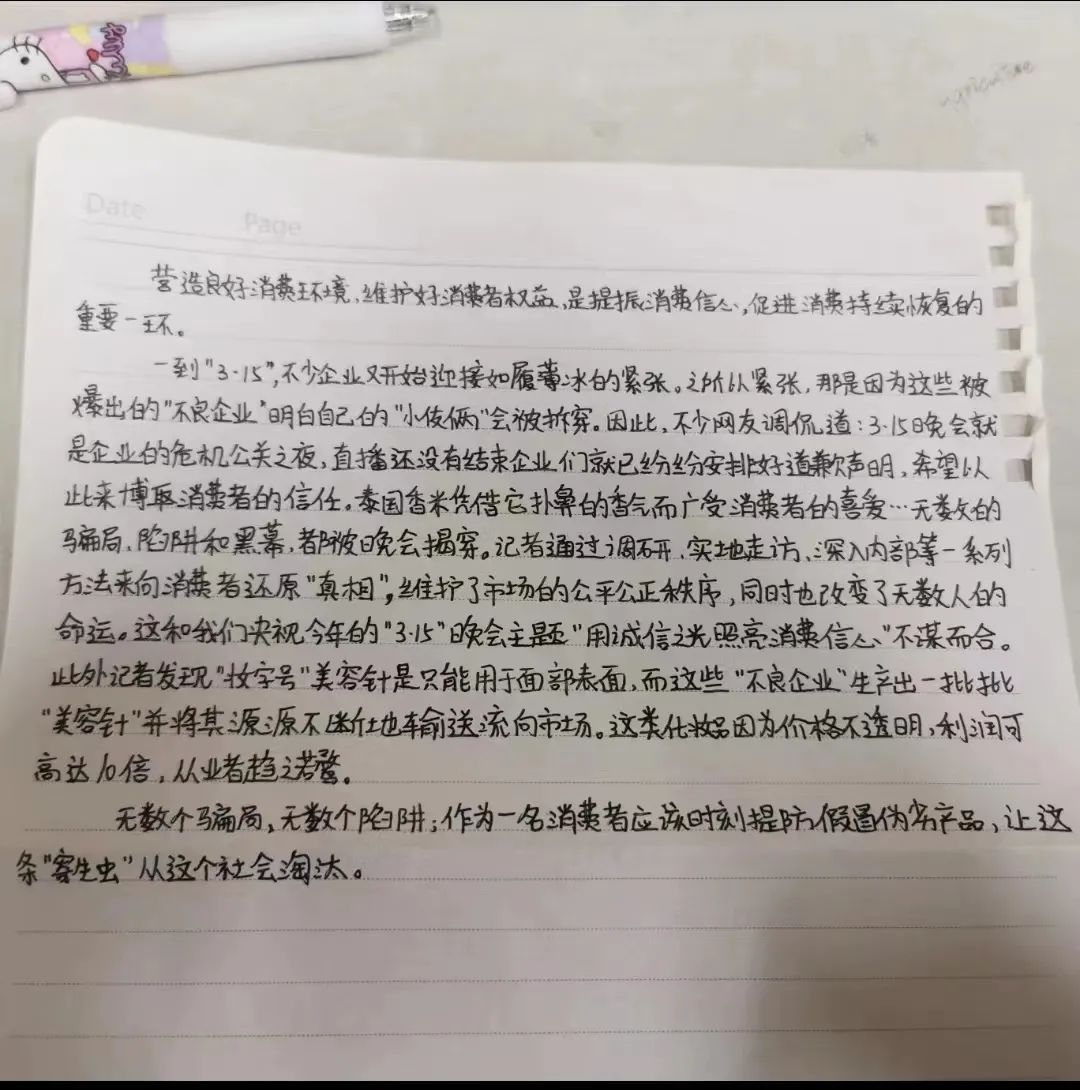 Date Page
营造良好消费环境,维护好消费者权益,是提振消费信心,促进消费持续恢复的
重要一环。
一到"3·15",不少企业又开始迎接如履薄冰的紧张。之所以紧张,那是因为这些被
爆出的"不良企业"明白自己的"小伎俩"会被拆穿。因此,不少网友调侃道:3·15晚会就
是企业的危机公关之夜,直播还没有结束企业们就已纷纷安排好道歉声明,希望以
此来博取消费者的信任。泰国香米凭借它扑鼻的香气而广受消费者的喜爱…无数的
骗局、陷阱和黑幕,都被晚会揭穿。记者通过调研、实地走访、深入内部等一系列
方法来向消费者还原"真相",维护了市场的公平公正秩序,同时也改变了无数人的
命运。这和我们央视今年的"3·15"晚会主题"用诚信之光照亮消费信心"不谋而合。
此外记者发现"妆字号"美容针是只能用于面部表面,而这些"不良企业"生产出一批批
"美容针"并将其源源不断地输送流向市场。这类化妆品因为价格不透明,利润可
高达10倍,从业者趋之若鹜。
无数个骗局,无数个陷阱;作为一名消费者应该时刻提防假冒伪劣产品,让这
条"寄生虫"从这个社会淘汰。